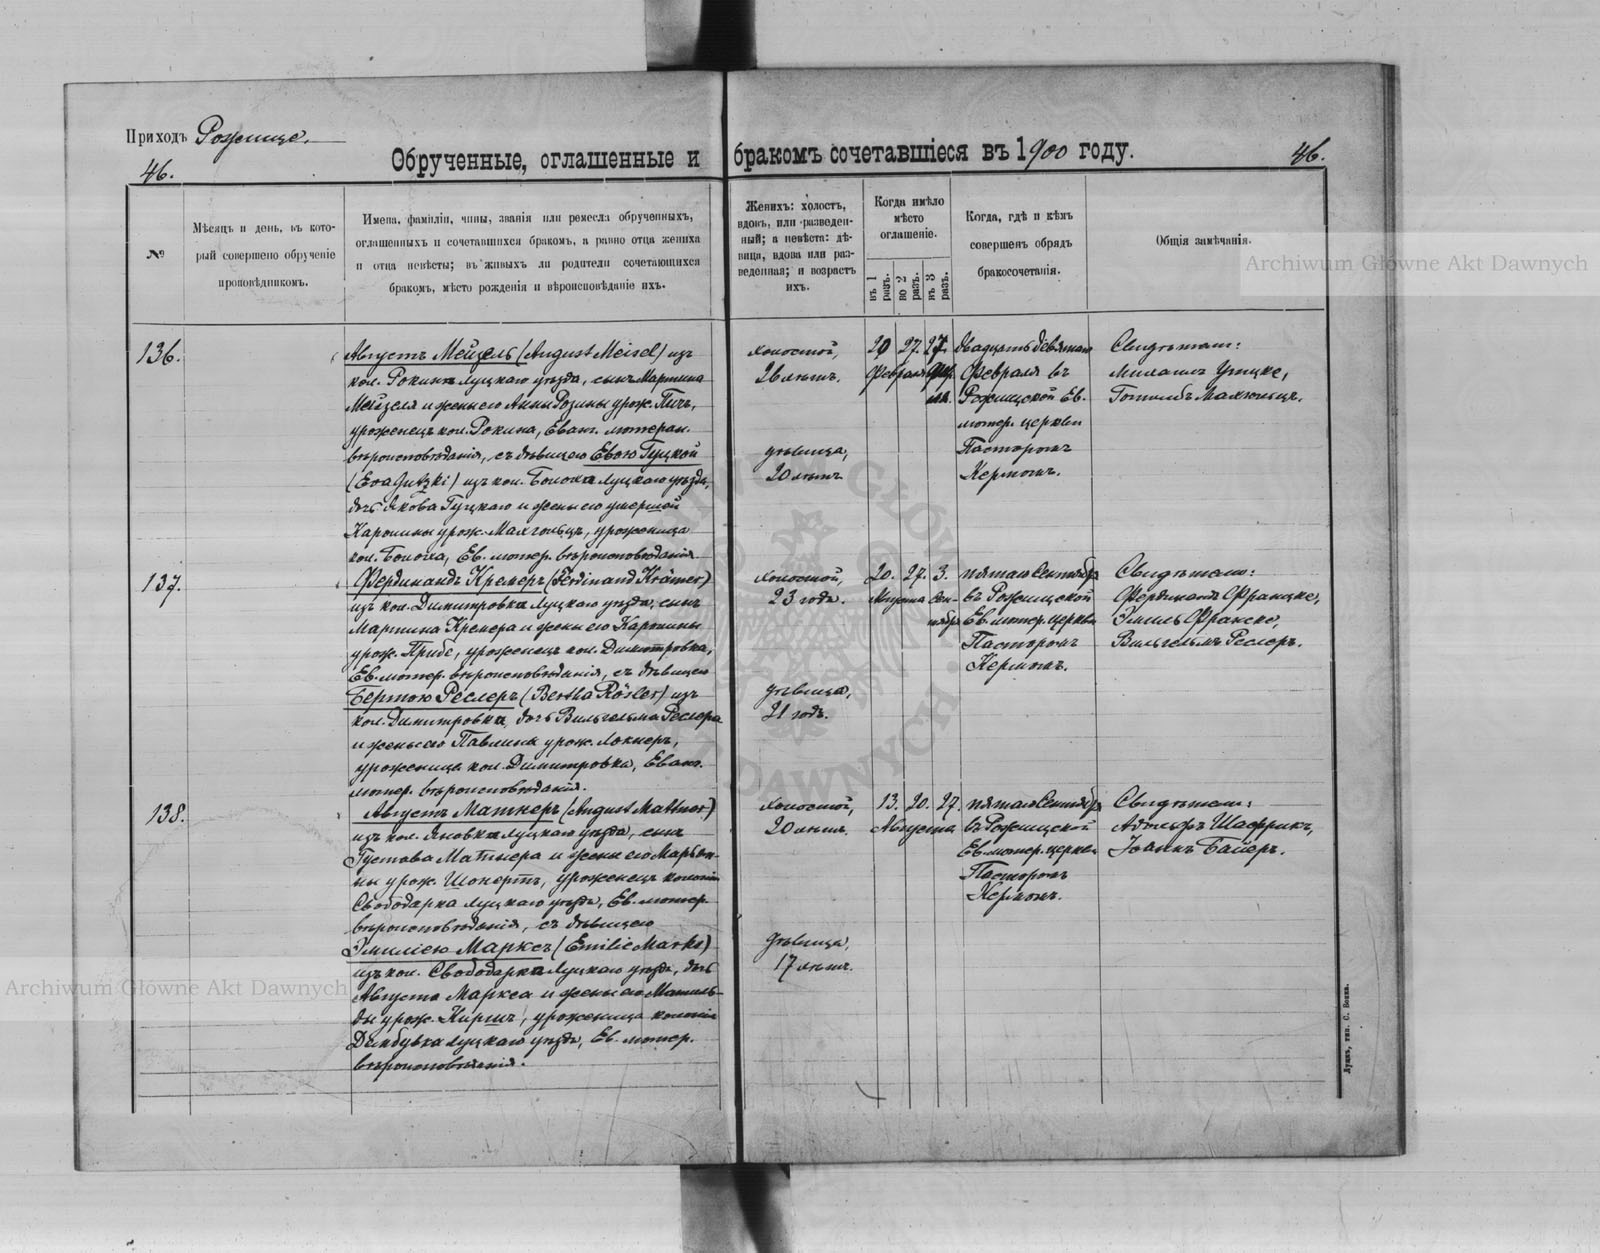 Приходъ Рожище.
46.
Обрученные, оглашенные и бракомъ сочетавшіеся въ 1900 году.
46.
№
Мѣсяцъ и день, въ кото-
рый совершено обрученіе
проповѣдникомъ.
Имена, фамиліи, чины, званія или ремесла обрученныхъ,
оглашенныхъ и сочетавшихся бракомъ, а равно отца жениха
и отца невѣсты; въ живыхъ ли родители сочетающихся
бракомъ, мѣсто рожденія и вѣроисповѣданіе ихъ.
Женихъ: холостъ,
вдовъ, или разведен-
ный; а невѣста: дѣ-
вица, вдова или раз-
веденная; и возрастъ
ихъ.
Когда имѣло
мѣсто
оглашеніе.
въ 1 разъ.
во 2 разъ.
въ 3 разъ.
Когда, гдѣ и кѣмъ
совершенъ обрядъ
бракосочетанія.
Общія замѣчанія.
Archiwum Główne Akt Dawnych
136.
Августъ Мейзель (August Meisel) изъ
кол. Рокини Луцкаго уѣзда, сынъ Мартина
Мейзеля и жены его Анны Розины урож. Пичъ,
уроженецъ кол. Рокина, Еванг. лютеран.
вѣроисповѣданія, съ дѣвицею Евою Гуцкой
(Eva Gutzki) изъ кол. Луцкаго уѣзда,
дочь Якова Гуцкаго и жены его умершей
Каролины урож. уроженица
кол. Ев. лютер. вѣроисповѣданія.
холостой,
26 лѣтъ.
дѣвица,
20 лѣтъ
20 27. 27.
Февраля
двадцать девятаго
Февраля въ
Рожищской Ев.
лютер. церкви
Пасторомъ
Кермомъ.
Свидѣтели:
Готлибъ
137.
Фердинандъ Кремеръ (Ferdinand Krämer)
изъ кол. Димитровка Луцкаго уѣзда, сынъ
Мартина Кремера и жены его Каролины
урож. Приде, уроженец кол. Димитровка,
Ев. лютер. вѣроисповѣданія, съ дѣвицею
Бертою Реслеръ (Bertha Rösler) изъ
кол. Димитровка, дочь Вильгельма Реслера
и жены его Павлины урож. Локнеръ,
уроженица кол. Димитровка, Еванг.
лютер. вѣроисповѣданія.
холостой,
23 года.
дѣвица,
21 годъ.
20. 27. 3.
Августа Сен-
тября
пятаго Сентября
въ Рожищской
Ев. лютер. церкви
Пасторомъ
Кермомъ.
Свидѣтели:
Фердинандъ Францке,
Эмиль Франске,
Вильгельмъ Реслеръ.
138.
Августъ Матнеръ (August Mattner)
изъ кол. Яновка Луцкаго уѣзда, сынъ
Густава Матнера и жены его Марьян-
ны урож. Шонертъ, уроженецъ колоніи
Свободарка Луцкаго уѣзда, Ев. лютер.
вѣроисповѣданія, съ дѣвицею
Эмиліею Марксъ (Emilie Marks)
изъ кол. Свободарка Луцкаго уѣзда, дочь
Августа Маркса и жены его Матиль-
ды урож. Киршъ, уроженица колоніи
Дембувка Луцкаго уѣзда, Ев. лютер.
вѣроисповѣданія.
холостой,
20 лѣтъ.
дѣвица,
17 лѣтъ.
13. 20. 27.
Августа
пятаго Сентября
въ Рожищской
Ев. лютер. церкви
Пасторомъ
Кермомъ.
Свидѣтели:
Адольфъ Шафрикъ,
Іоганнъ Байеръ.
Archiwum Główne Akt Dawnych
Луцкъ, тип. С. Бокка.